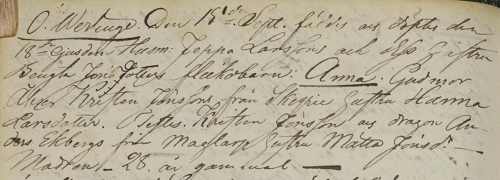 Ö. Wertinge. Den 18de Sept. föddes och döptes den
18de Ejusdem Huusm: Jeppa Larssons och
Bengta Jöns doters flickobarn: Anna. Gudmor
Åkes Kristen Jönssons från Skegrie hustru Hanna
Larsdatter. Testes. Kristen Jönsson och dragon An-
ders Ekbergs från Maglarp hustru Matta Jönsd.
Madren 28 år gammal